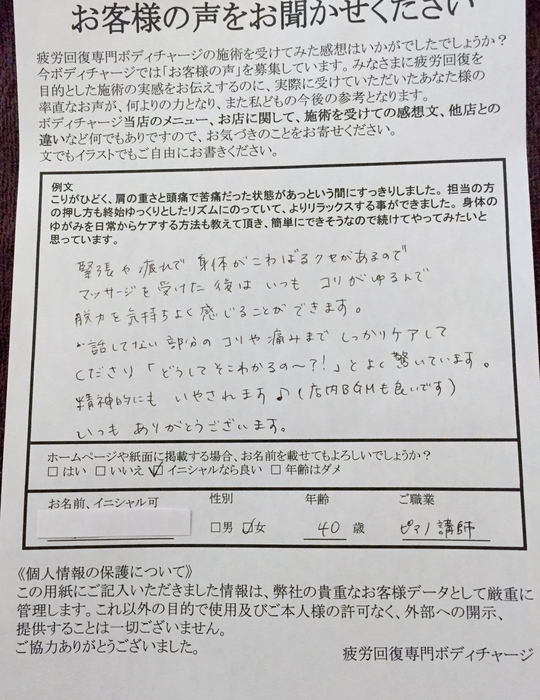 お客様の声をお聞かせください
疲労回復専門ボディチャージの施術を受けてみた感想はいかがでしたでしょうか？
今ボディチャージでは「お客様の声」を募集しています。みなさまに疲労回復を
目的とした施術の実感をお伝えするのに、実際に受けていただいたあなた様の
率直なお声が、何よりの力となり、また私どもの今後の参考となります。
ボディチャージ当店のメニュー、お店に関して、施術を受けての感想文、他店との
違いなど何でもありですので、お気づきのことをお寄せください。
文でもイラストでもご自由にお書きください。
例文
こりがひどく、肩の重さと頭痛で苦痛だった状態があっという間にすっきりしました。担当の方
の押し方も終始ゆっくりとしたリズムにのっていて、よりリラックスする事ができました。身体の
ゆがみを日常からケアする方法も教えて頂き、簡単にできそうなので続けてやってみたいと
思っています。
緊張や疲れで身体がこわばるクセがあるので
マッサージを受けた後はいつもコリがゆるんで
脱力を気持ちよく感じることができます。
お話してない部分のコリや痛みまでしっかりケアして
くださり「どうしてそこわかるの〜?!」とよく驚いています。
精神的にもいやされます♪(店内BGMも良いです)
いつもありがとうございます。
ホームページや紙面に掲載する場合、お名前を載せてもよろしいでしょうか？
□はい □いいえ ☑イニシャルなら良い □年齢はダメ
お名前、イニシャル可 性別 年齢 ご職業
□男 ☑女 40 歳 ピアノ講師
《個人情報の保護について》
この用紙にご記入いただきました情報は、弊社の貴重なお客様データとして厳重に
管理します。これ以外の目的で使用及びご本人様の許可なく、外部への開示、
提供することは一切ございません。
ご協力ありがとうございました。
疲労回復専門ボディチャージ